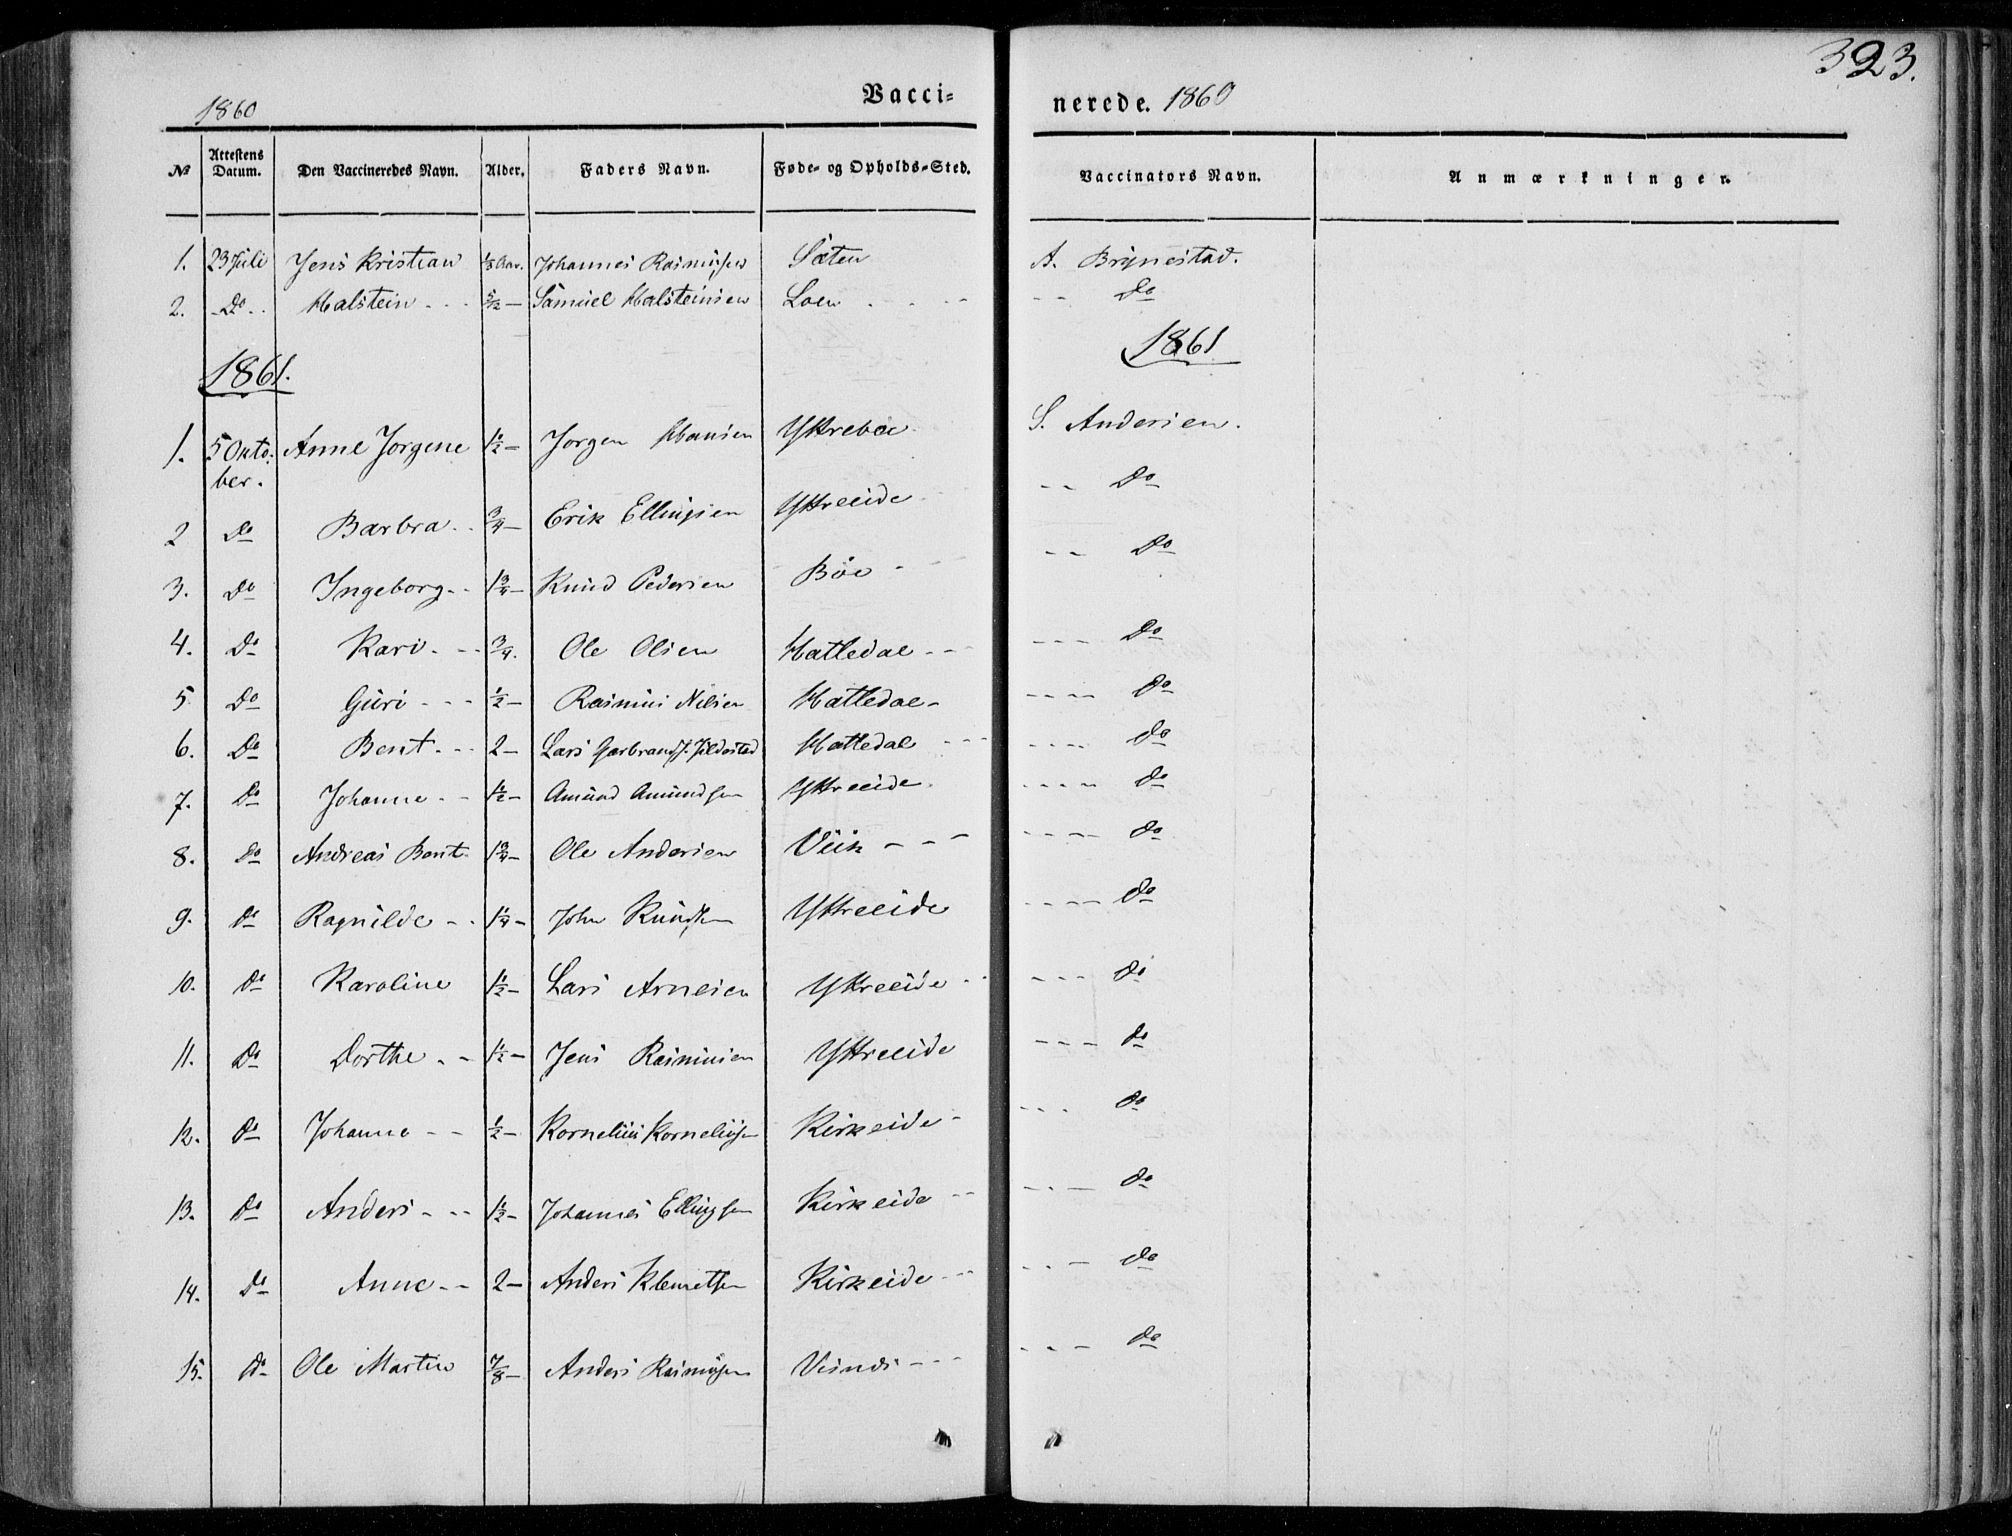 323.
1860 Vacci-
nerede. 1860
№ Attestens Datum. Den Vaccineredes Navn. Alder. Faders Navn. Føde- og Opholds-Sted. Vaccinators Navn. Anmærkninger.
1. 23 Juli Jens Kristian 1/8 Aar. Johannes Rasmusen Sæten A. Brynestad.
2. Do Halstein 5/12 – Samuel Halsteinsen Loen Do
1861. 1861
1. 5 Okto- Anne Jorgene 1½ – Jorgen Hansen Yttrebøe S. Andersen.
ber.
2 Do Barbra ¾ – Erik Ellingsen Yttreeide Do
3. Do Ingeborg 1¾ – Knud Pedersen Böe Do
4. Do Kari ¾. Ole Olsen Hatledal Do
5 Do Guri ½ – Rasmus Nilsen Hatledal Do
6. Do Bent 2 – Lars Gerbrands. Hatledal Do
7. Do Johanne 1½ – Amund Amundsen Yttreeide. Do
8. Do Andreas Bent 1¾ – Ole Andersen Viik Do
9. Do Ragnilde 1¼ – John Knudsen Yttreeide Do
10. Do Karoline 1½ – Lars Arnesen Yttreeide Do
11. Do Dorthe 1½ – Jens Rasmusen Yttreeide Do
12. Do Johanne ½ – Kornelius Korneliusen Kirkeide Do
13. Do Anders 1½ – Johannes Ellingsen Kirkeide Do
14. Do Anne 2 – Anders Klemetsen Kirkeide Do
15. Do Ole Martin 7/8 – Anders Rasmusen Visnes Do